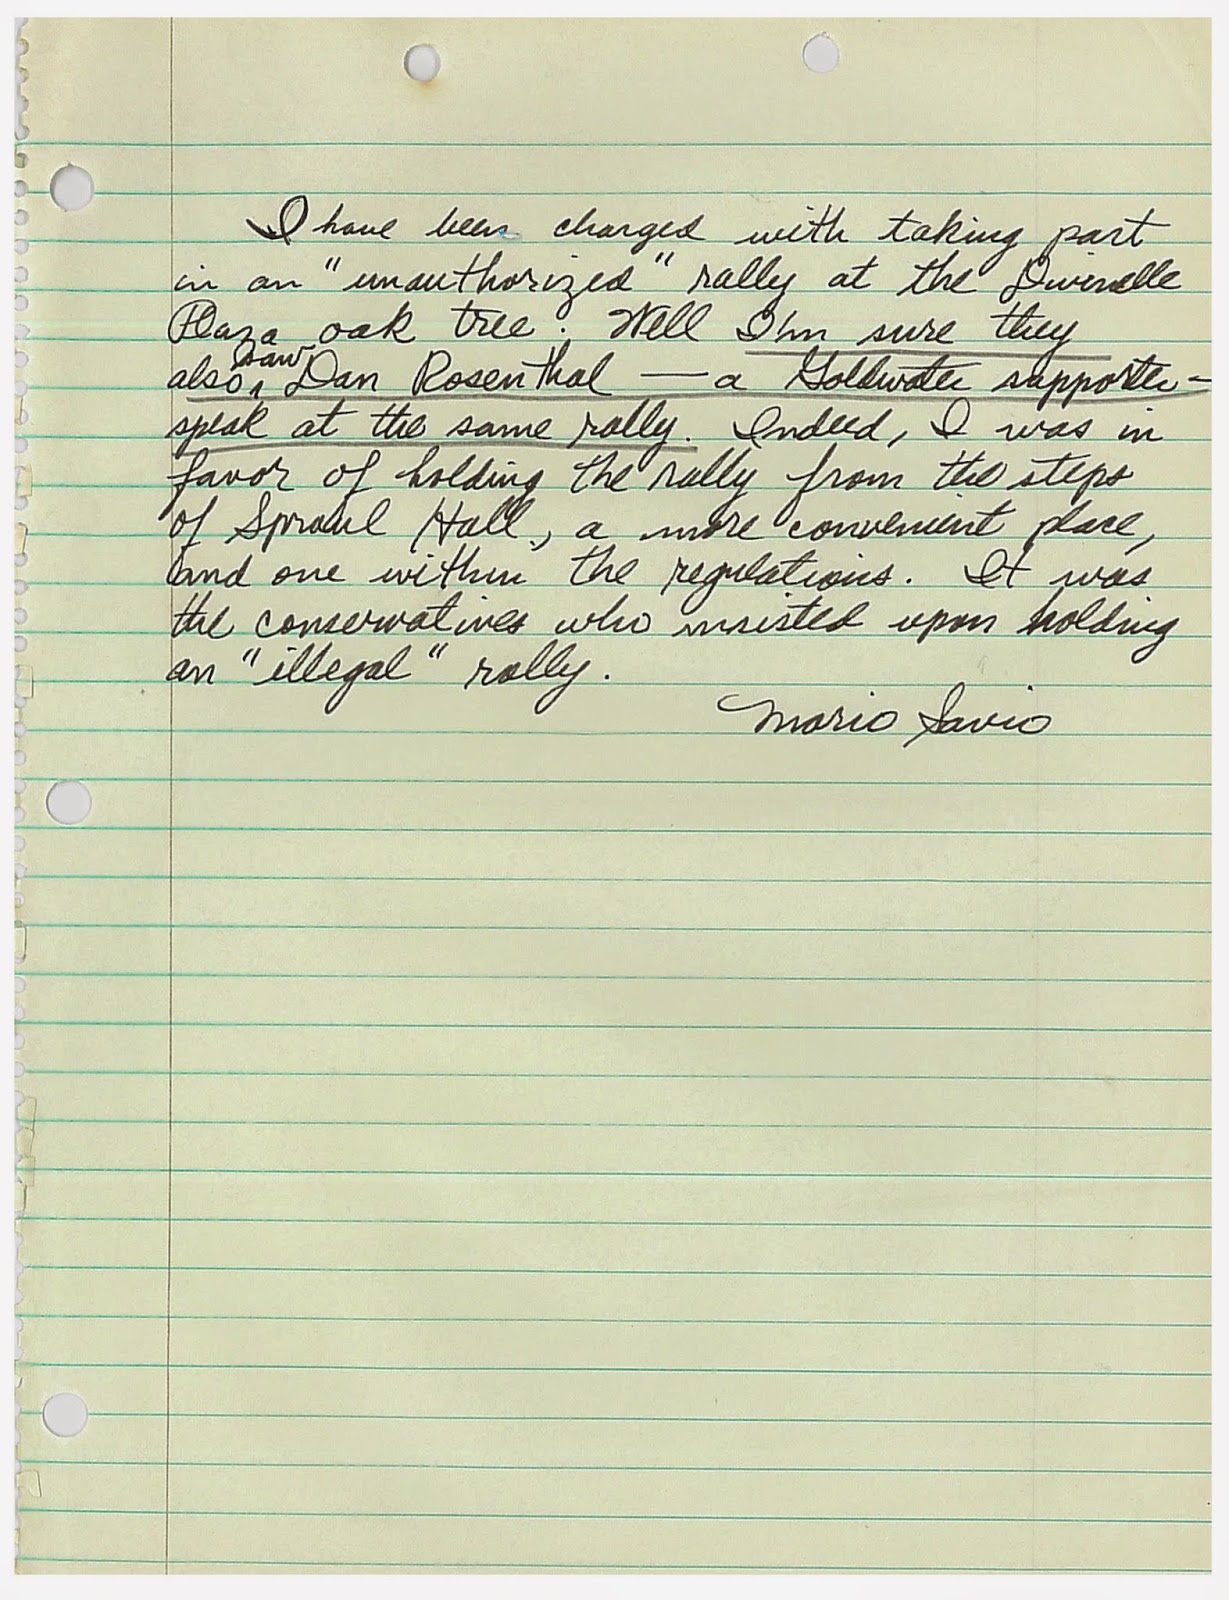 I have been charged with taking part
in an "unauthorized" rally at the Dwinelle
Plaza oak tree. Well I'm sure they
also saw Dan Rosenthal — a Goldwater supporter –
speak at the same rally. Indeed, I was in
favor of holding the rally from the steps
of Sproul Hall, a more convenient place,
and one within the regulations. It was
the conservatives who insisted upon holding
an "illegal" rally.
Mario Savio